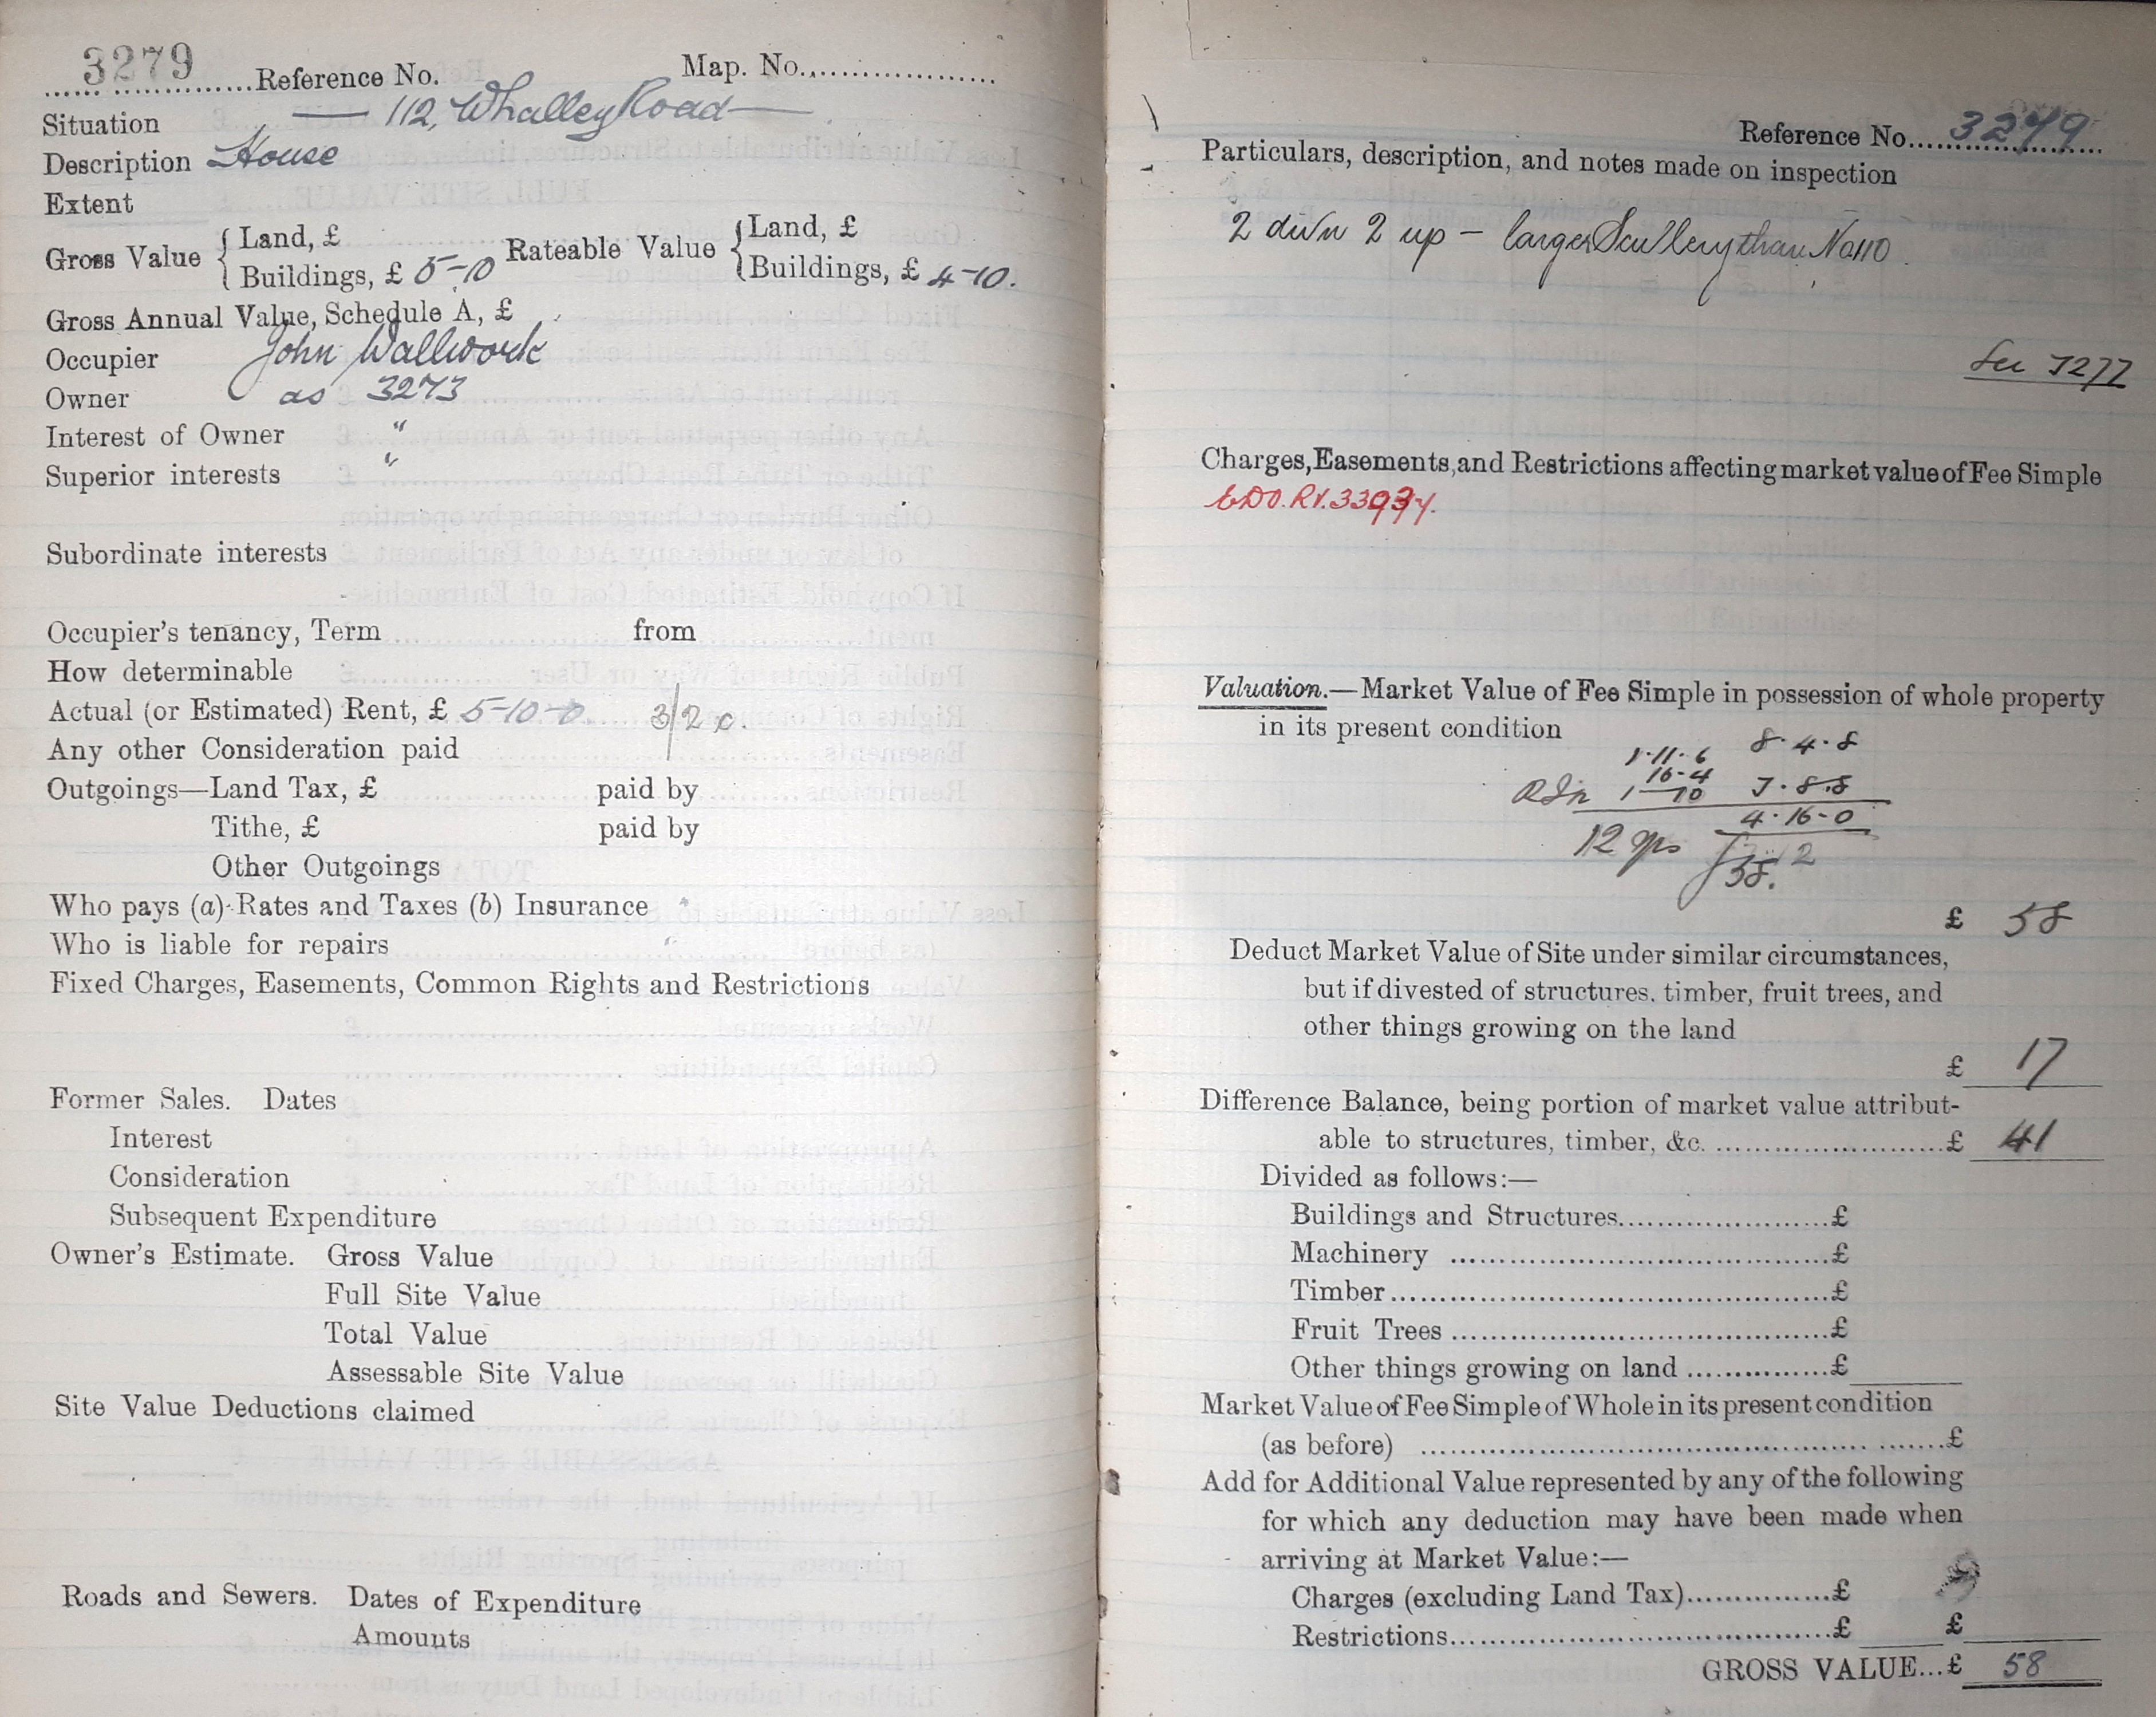 3279
Reference No. Map. No.
Situation — 112, Whalley Road —
Description House
Extent
Gross Value { Land, £ Rateable Value { Land, £
Buildings, £ 5-10 Buildings, £ 4-10.
Gross Annual Value, Schedule A, £
Occupier John Wallwork
Owner as 3273
Interest of Owner "
Superior interests "
Subordinate interests
Occupier's tenancy, Term from
How determinable
Actual (or Estimated) Rent, £ 5-10-0 3/2 c.
Any other Consideration paid
Outgoings—Land Tax, £ paid by
Tithe, £ paid by
Other Outgoings
Who pays (a) Rates and Taxes (b) Insurance "
Who is liable for repairs "
Fixed Charges, Easements, Common Rights and Restrictions
Former Sales. Dates
Interest
Consideration
Subsequent Expenditure
Owner's Estimate. Gross Value
Full Site Value
Total Value
Assessable Site Value
Site Value Deductions claimed
Roads and Sewers. Dates of Expenditure
Amounts
Reference No. 3279
Particulars, description, and notes made on inspection
2 down 2 up – larger Scullery than No 110.
See 3277
Charges, Easements, and Restrictions affecting market value of Fee Simple
Valuation.—Market Value of Fee Simple in possession of whole property
in its present condition
1-11-6 8-4-8
16-4
1-10 3-8-8
4-16-0
12 yrs
£ 58
Deduct Market Value of Site under similar circumstances,
but if divested of structures. timber, fruit trees, and
other things growing on the land
£ 17
Difference Balance, being portion of market value attribut-
able to structures, timber, &c. £ 41
Divided as follows:—
Buildings and Structures £
Machinery £
Timber £
Fruit Trees £
Other things growing on land £
Market Value of Fee Simple of Whole in its present condition
(as before) £
Add for Additional Value represented by any of the following
for which any deduction may have been made when
arriving at Market Value:—
Charges (excluding Land Tax) £
Restrictions £ £
GROSS VALUE... £ 58